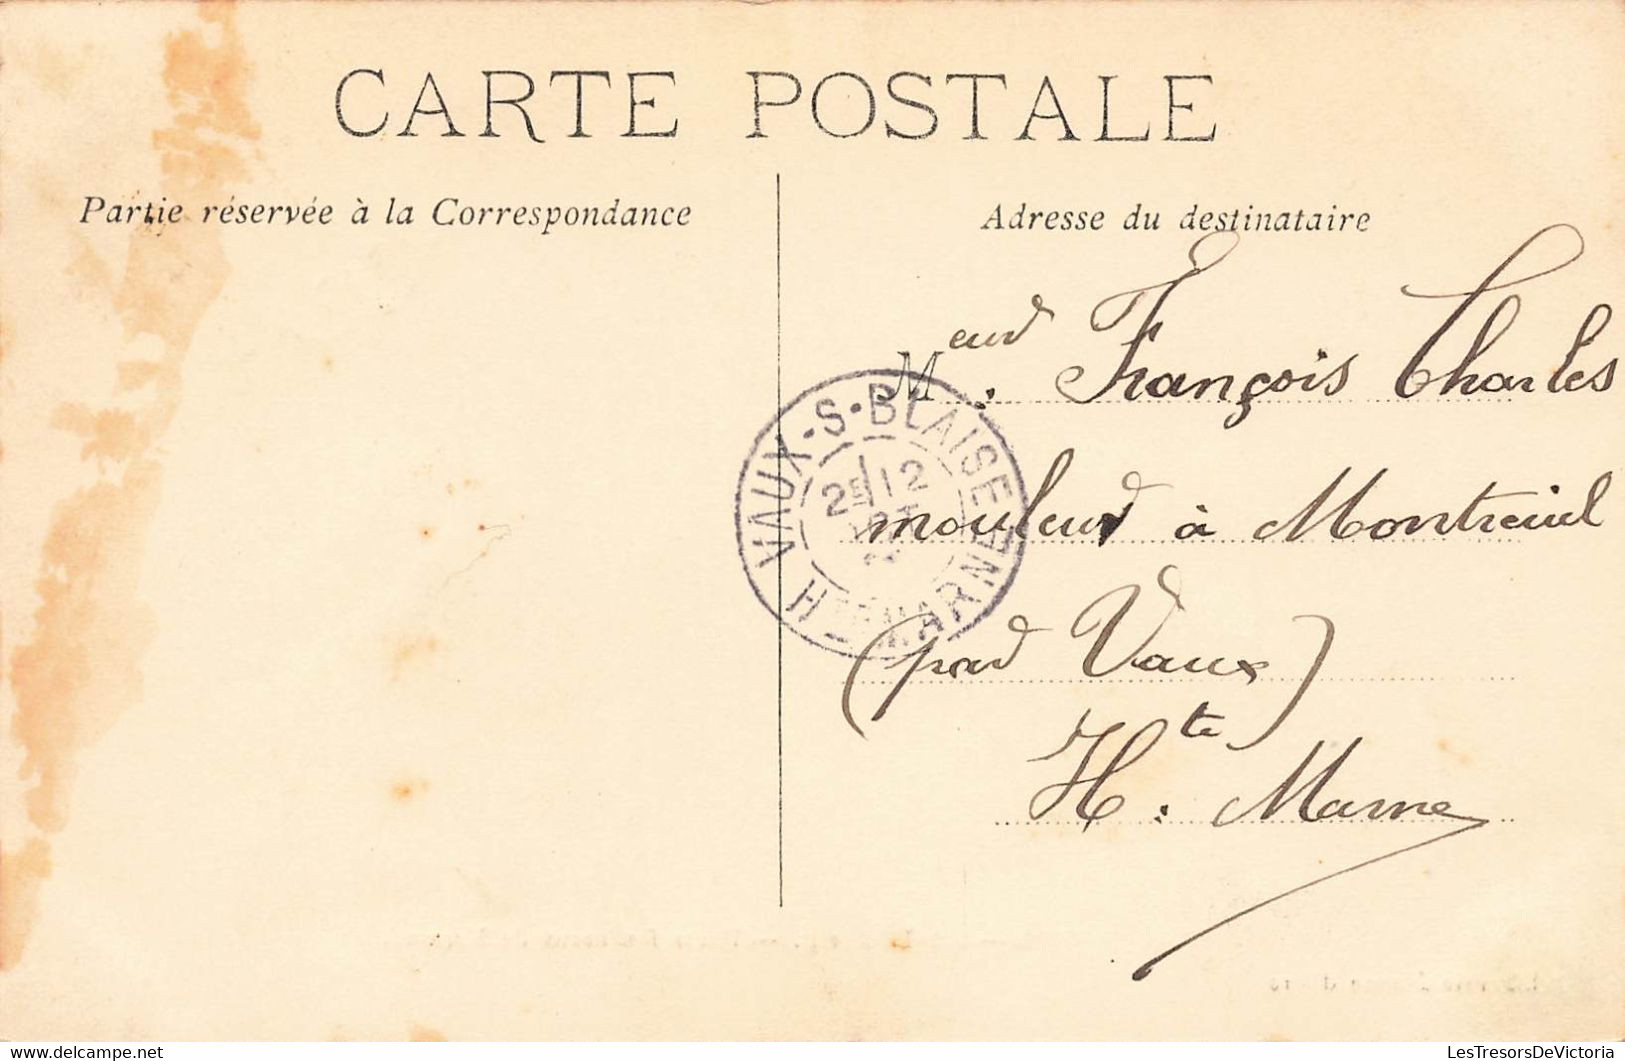 CARTE POSTALE
Partie réservée à la Correspondance
Adresse du destinataire
M eur. François Charles
mouleur à Montreuil
(par Vaux)
H te. Marne
VAUX-S-BLAISE
2E/12
HTE MARNE
LesTresorsDeVictoria